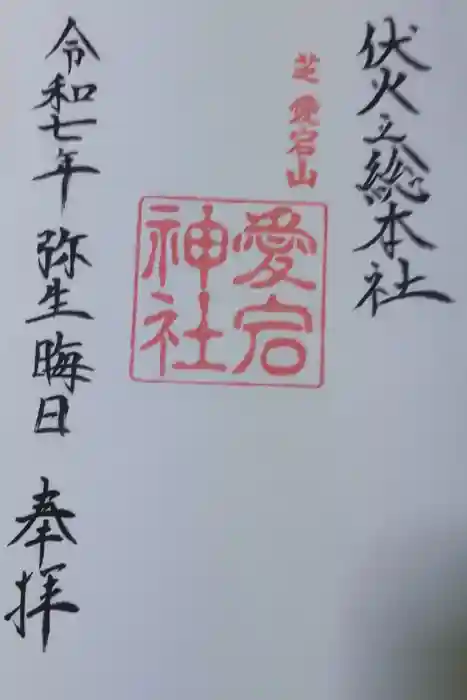 伏火之総本社
芝 愛宕山
愛宕
神社
令和七年 弥生晦日 奉拝